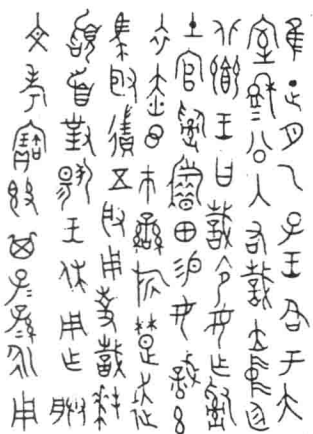 隹正月乙巳王各于大
室穆公入右𢦚立中廷
北鄉王曰𢦚令女乍𤔲
土官𤔲耤田易女戠玄
衣赤巿䜌旂楚走
馬取五寽用事𢦚拜
稽首對揚王休用乍朕
文考寶簋其子子孫永用